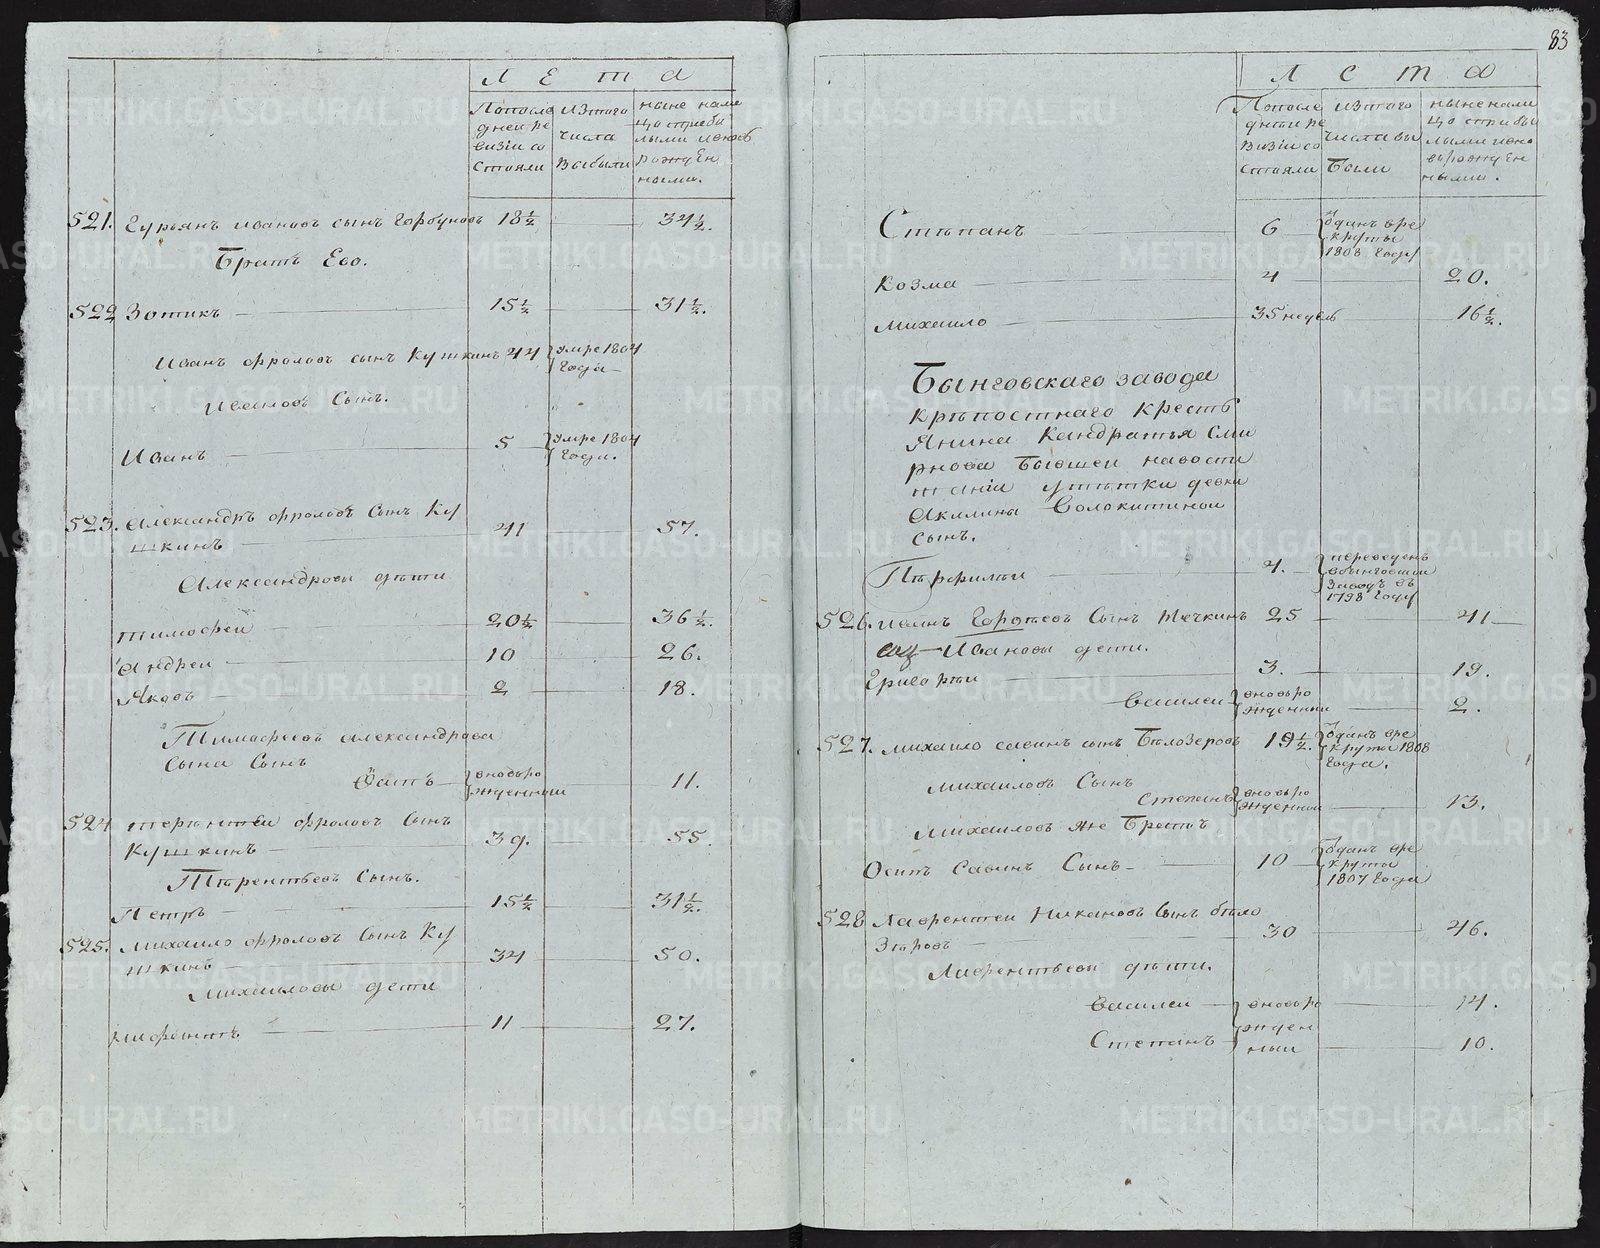 Лета
Попосле
дней ре
визіи со
стояли
изтого
числа
выбыли
ныне нали
цо спрібы
лыми иновъ
рожден
ными.
521. Гурьянъ Ивановъ сынъ Горбуновъ 18½ 34½.
Братъ Его.
522 Зотикъ 15½ 31½.
Иванъ Фроловъ сынъ Кушкинъ 44 умре 1804
Года
Ивановъ Сынъ.
Иванъ 5 умре 1804
Года.
523. Александръ Фроловъ Сынъ Ку
шкинъ 41 57.
Александровы дѣти
Тимофеи 20½ 36½.
Андреи 10 26.
Яковъ 2 18.
Тимофеевъ Александрова
Сына Сынъ
вновьро
жденныи 11.
524 Терентеи Фроловъ Сынъ
Кушкинъ 39. 55.
Тѣрентьевъ Сынъ.
Петръ 15½ 31½.
525. Михаило Фроловъ Сынъ Ку
шкинъ 34 50.
Михаиловы дети
11 27.
83
Лета
Попосле
дней ре
визіи со
стояли
изтого
числа вы
были
ныне нали
цо спрібы
лыми ино
ворожден
ными.
Стѣпанъ 6 Ѿданъ вре
круты
1808 Году
Козма 4 20.
Михаило 35 недель 16½.
Бынговскаго завода
крѣпостнаго кресть
янина Кандратья Сми
рнова бывшеи навоспи
таніи уттки девки
Акилины Волокитинои
сынъ.
Пѣрфилѣи 4. переведенъ
вбынговскои
Заводъ въ
1798 Году
526. Иванъ Сынъ Тячкинъ 25 41
Ивановы дети.
Григорѣи 3. 19.
Василеи вновьро
жденныи 2.
527. Михаило Савинъ сынъ Бѣлозеровъ 19½. Ѿданъ вре
круты 1808
Года.
Михаиловъ Сынъ
Степанъ вновьро
жденныи 13.
Михаиловъ же Братъ
Осипъ Савинъ Сынъ 10 Ѿданъ вре
круты
1807 Года
528 Лаврентеи Никановъ Сынъ бѣло
Зѣровъ 30 46.
Лаврентьевы дѣти.
Василеи вновьро 14.
жден
Степанъ ныи 10.
METRIKI.GASO-URAL.RU